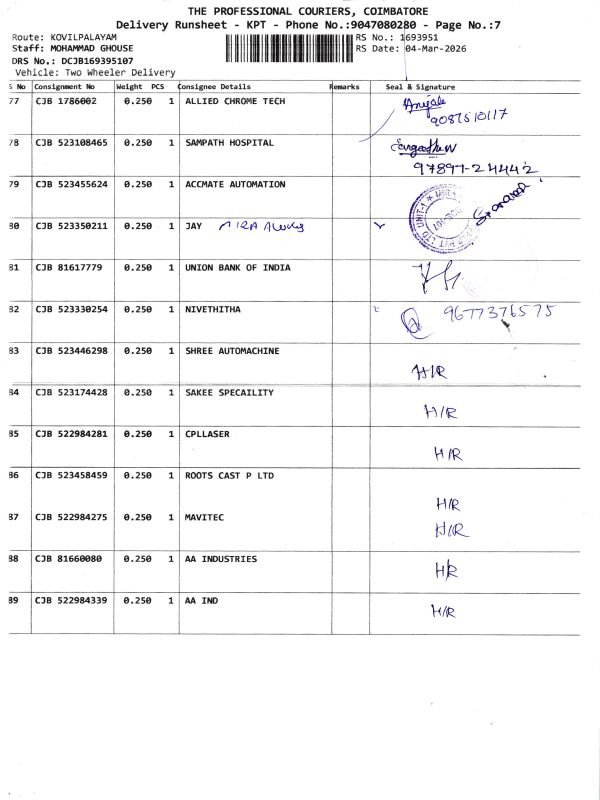 THE PROFESSIONAL COURIERS, COIMBATORE
Delivery Runsheet - KPT - Phone No.:9047080280 - Page No.:7
Route: KOVILPALAYAM RS No.: 1693951
Staff: MOHAMMAD GHOUSE RS Date: 04-Mar-2026
DRS No.: DCJB169395107
Vehicle: Two Wheeler Delivery
S No Consignment No Weight PCS Consignee Details Remarks Seal & Signature
77 CJB 1786002 0.250 1 ALLIED CHROME TECH
9087510117
78 CJB 523108465 0.250 1 SAMPATH HOSPITAL
97897-24442
79 CJB 523455624 0.250 1 ACCMATE AUTOMATION
80 CJB 523350211 0.250 1 JAY MIRA
81 CJB 81617779 0.250 1 UNION BANK OF INDIA
82 CJB 523330254 0.250 1 NIVETHITHA 9677376575
83 CJB 523446298 0.250 1 SHREE AUTOMACHINE H/R
84 CJB 523174428 0.250 1 SAKEE SPECAILITY H/R
85 CJB 522984281 0.250 1 CPLLASER H/R
86 CJB 523458459 0.250 1 ROOTS CAST P LTD H/R
87 CJB 522984275 0.250 1 MAVITEC H/R
88 CJB 81660080 0.250 1 AA INDUSTRIES H/R
89 CJB 522984339 0.250 1 AA IND H/R